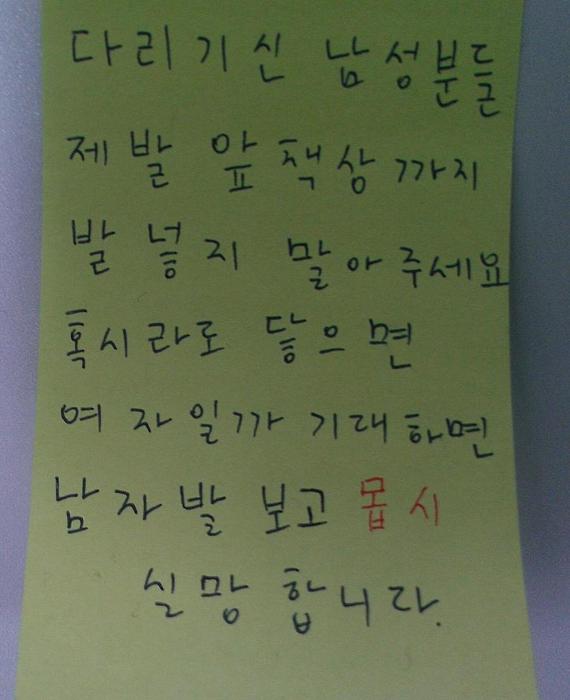 다리 기신 남성분들
제발 앞 책상까지
발 넣지 말아주세요
혹시라도 닿으면
여자일까 기대하면
남자발 보고 몹시
실망합니다.